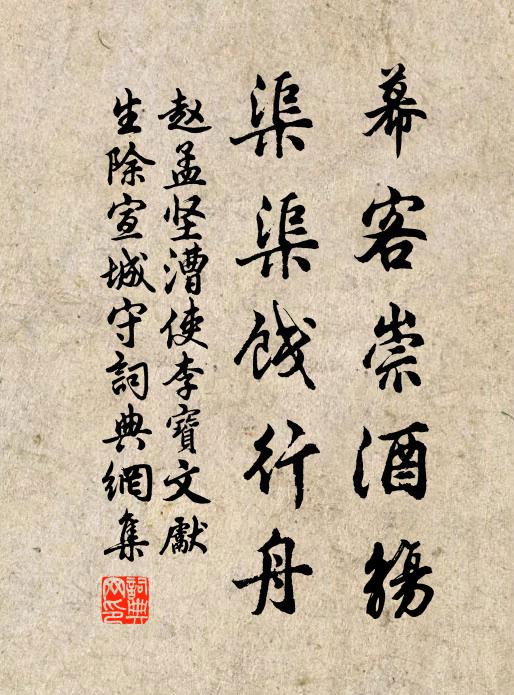 幕客崇酒觞
渠渠饯行舟
赵孟坚漕使李寶文獻
生除宣城守詞典網集
詞典网印